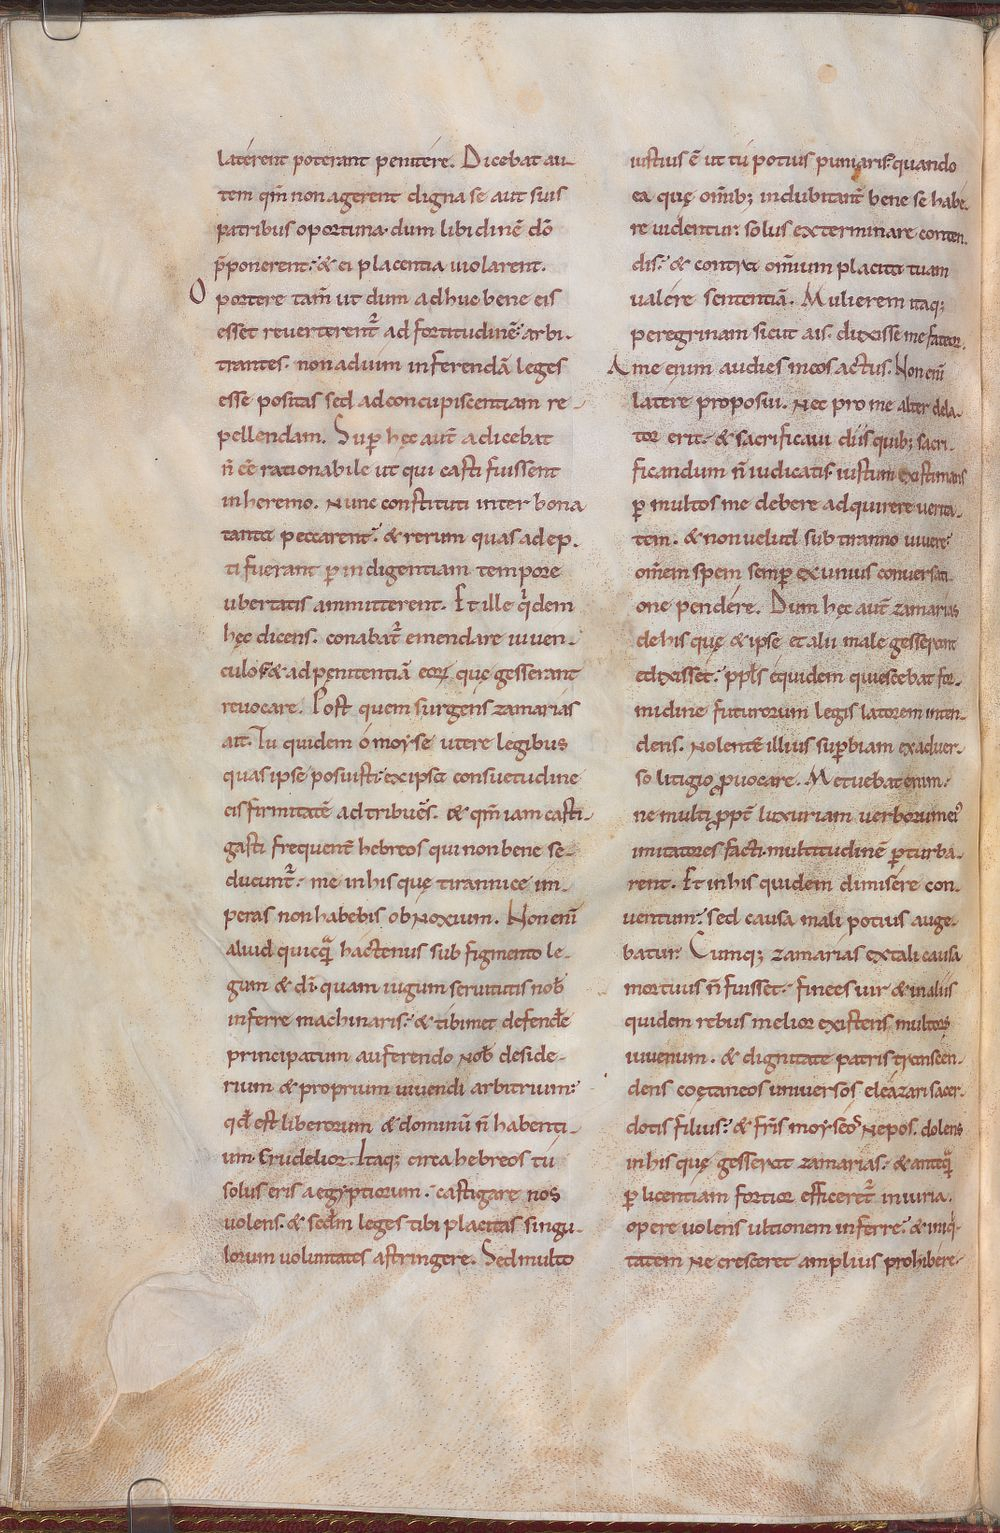 laterent poterant penitére. Dicebat au-
tem qm̄ non agerent digna se aut suis
patribus oportuna. dum libidinē dō
p̄ponerent. & ei placentia uiolarent.
Oportere tam̄ ut dum adhuc bene eis
esset reuerterent᷑ ad fortitudinē. arbi-
trantes. non ad uim inferendā leges
esse positas sed ad concupiscentiam re-
pellendam. Sup̱ hęc aut̄ a dicebat
n̄ eē rationabile ut qui casti fuissent
in heremo. Nunc constituti inter bona
tanta peccarent. & rerum quas adep-
ti fuerant p̱ indigentiam tempore
ubertatis ammitterent. Et ille q'dem
hęc dicens. conabat᷑ emendare iuuen-
culos & ad penitentiā eoꝝ que gesserant
reuocare. Post quem surgens zamarias
ait. Tu quidem ó moyse utere legibus
quas ipse posuisti. ex ipsa consuetudine
eis firmitatē ad tribues. & qm̄ iam casti-
gasti frequent̄ hebreos qui non bene se-
ducunt᷑. me in his quę tirannice im-
peras non habebis obNoxium. Non enī
aliud quicq̄ hactenus sub figmento le-
gum & dī. quam iugum seruitutis nob̄
inferre machinaris. & tibimet defendēe
principatum auferendo Nob̄ deside-
rium & proprium uiuendi arbitrium.
qđ est liberorum & dominū n̄ habenti-
um. Crudelior. Itaq; circa hebreos tú
solus eris aegyptiorum. castigare nos
uolens. & sedm leges tibi placitas singu-
lorum uoluntates astringere. Sed multo
iustius ē ut tú potius puniaris. quando
ea quę omīb; indubitant̄ bene se habé-
re uidentur. solus exterminare conten-
dis. & contra omnium placita tuam
ualére sententiā. Mulierem itaq;
peregrinam sicut ais. duxisse me fateor.
A me eum audies meos actus. Non enī
latere proposui. Nec pro me alter dela-
tor erit. & sacrificaui diis quib; sacri-
ficandum n̄ iudicatis. iustum existimans
p̱ multos me debere adquirere uerita-
tem. & non uelud sub tiranno uiuere.
omēm spem semp̱ ex unius conuersati-
one pendére. Dum hęc aut̄ zamarias
de his quę & ipse et alii male gesserant
edixisset. ppl̄s équidem quiescebat for-
midine futurorum legis latorem inten-
dens. Nolentē illius sup̱biam ex aduer-
so litigio ꝓuocare. Metuebat enim.
ne multi ꝓpt̄ luxuriam uerborum ei'
imitatores facti. multitudinē p̱turba-
rent. Et in his quidem dimisére con-
uentum. sed causa mali potius auge-
batur. Cumq; zamarías ex tali causa
mortuus n̄ fuisset. finees uir & in aliis
quidem rebus melior existens multoꝝ
iuuenum. & dignitate patris transcen-
dens coętaneos uniuersos eleázari sacer-
dotis filius. & fr̄is moyseos Nepos. dolens
in his quę gesserat zamarias. & anteq̄
p̱ licentiam fortior efficeret᷑ iniuria.
opere uolens ultionem inferre. & iniq'-
tatem Ne cresceret amplius prohibere.